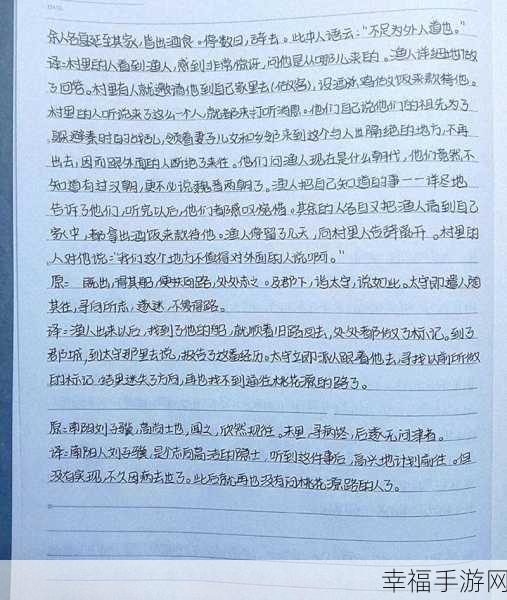 余人各复延至其家，皆出酒食。停数日，辞去。此中人语云："不足为外人道也。"
译：村里的人看到渔人，感到非常惊讶，问他是从哪儿来的。渔人详细地做
了回答。村里有人就邀请他到自己家里去(做客)，设酒杀鸡做饭来款待他。
村里的人听说来了这么一个人，就都来打听消息。他们自己说他们的祖先为了
躲避秦时的战乱，领着妻子儿女和乡邻来到这个与人世隔绝的地方，不再
出去，因而跟外面的人断绝了来往。他们问渔人现在是什么朝代，他们竟然不
知道有过汉朝，更不必说魏晋两朝了。渔人把自己知道的事一一详尽地
告诉了他们，听完以后，他们都感叹惋惜。其余的人各自又把渔人请到自己
家中，都拿出酒饭来款待他。渔人停留了几天，向村里人告辞离开。村里的
人对他说："我们这个地方不值得对外面的人说啊。"
原： 既出，得其船，便扶向路，处处志之。及郡下，诣太守，说如此。太守即遣人随
其往，寻向所志，遂迷，不复得路。
译：渔人出来以后，找到了他的船，就顺着旧路回去，处处都做了标记。到了
郡城，到太守那里去说，报告了这番经历。太守立即派人跟着他去，寻找以前所做
的标记，结果迷失了方向，再也找不到通往桃花源的路了。
原：南阳刘子骥，高尚士也，闻之，欣然规往。未果，寻病终，后遂无问津者。
译：南阳人刘子骥，是个志向高洁的隐士，听到这件事后，高兴地计划前往。但
没有实现，不久因病去世了。此后就再也没有问桃花源路的人了。
幸福手游网